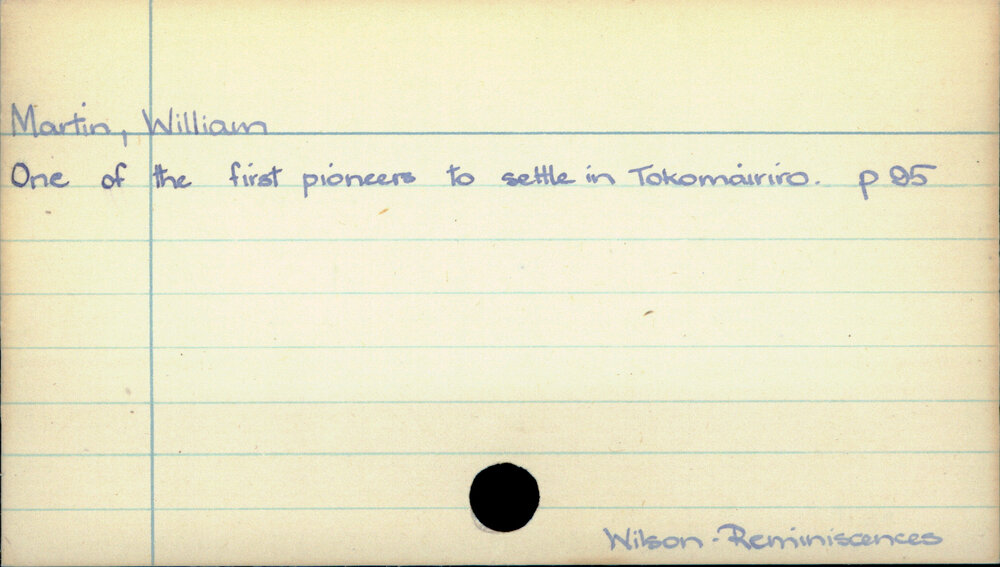 Martin, William
One of the first pioneers to settle in Tokomairiro. p 25
Wilson - Reminiscences